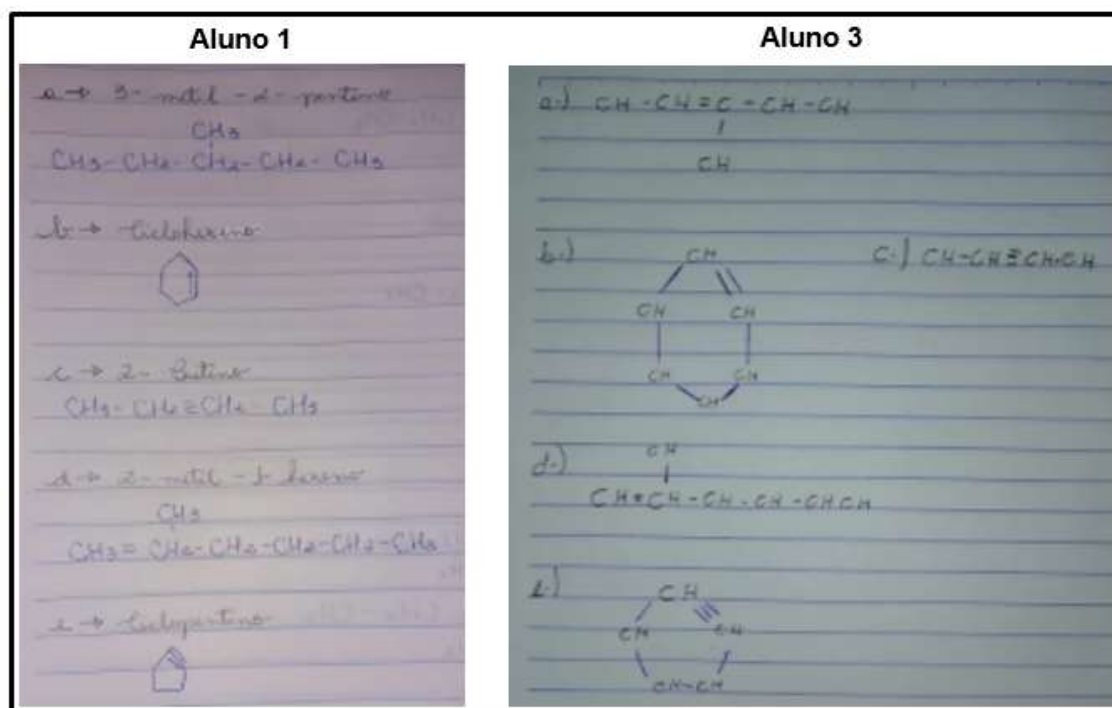 Aluno 1
a → 3-metil-2-pentino
CH3
CH3-CH2-CH2-CH2-CH3
b → Ciclohexeno
c → 2-butino
CH3-CH2≡CH2-CH3
d → 2-metil-1-hexeno
CH3
CH3=CH2-CH2-CH2-CH2-CH3
e → Ciclopentino
Aluno 3
a-) CH-CH=C-CH-CH
CH
b-)
CH
CH CH
CH CH
CH
C-) CH-CH≡CH-CH
d-)
CH
CH=CH-CH-CH-CH.CH
e-)
CH
CH CH
CH-CH